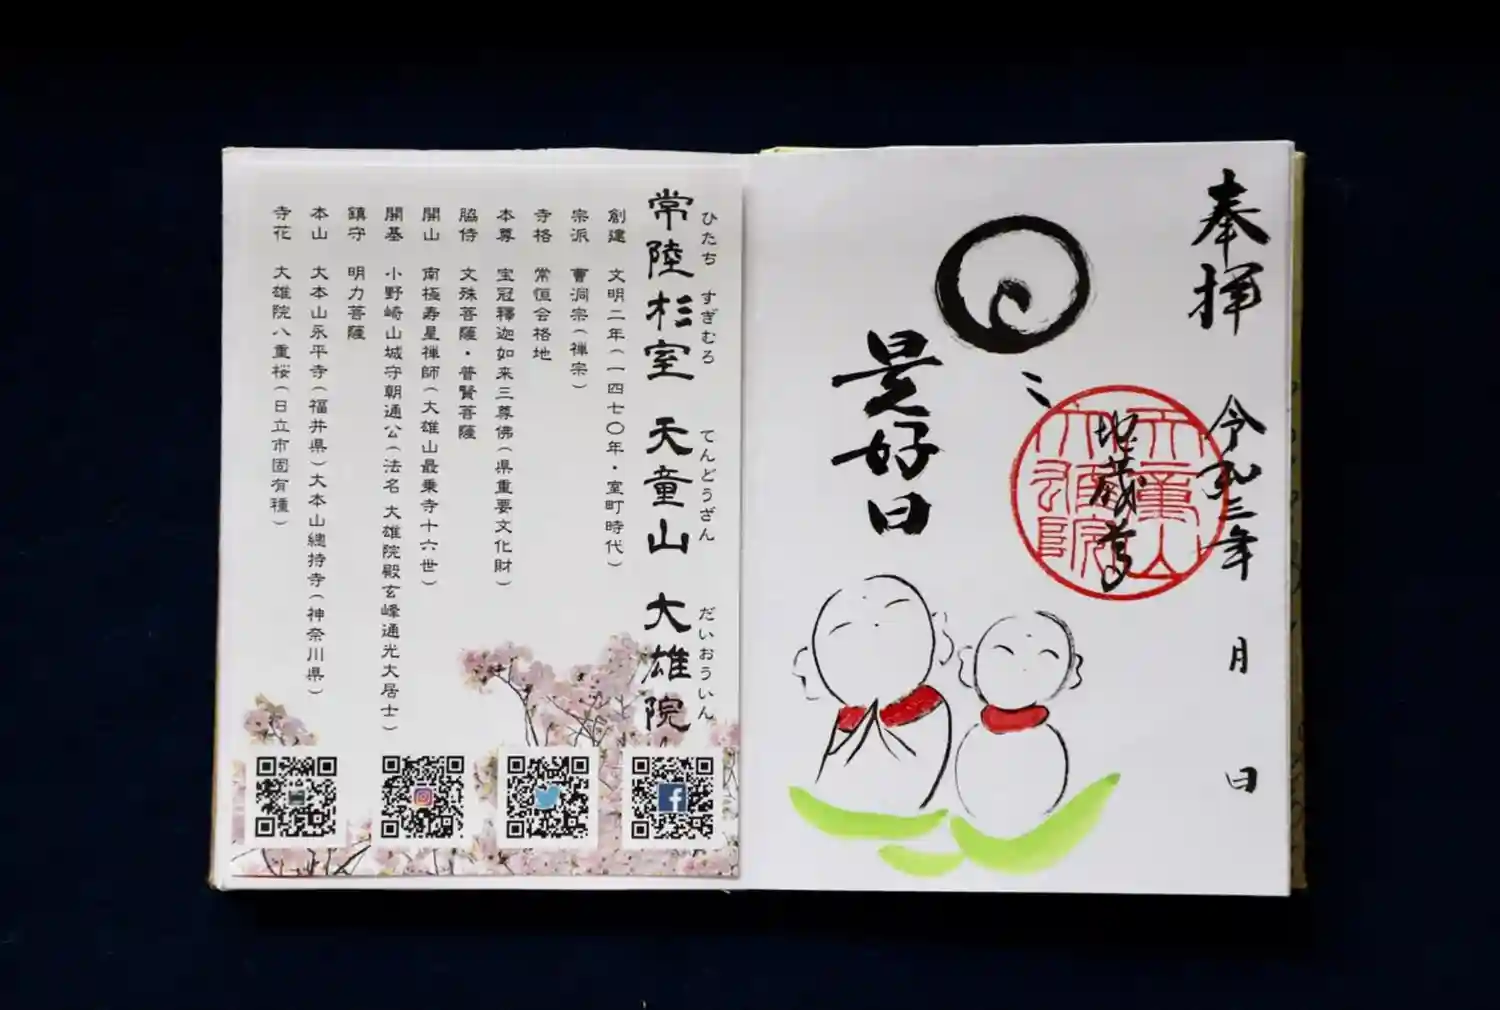 奉拝
令和三年 月 日
地蔵尊
日々是好日
天童山大雄院
常陸杉室 天童山 大雄院
ひたち すぎむろ てんどうざん だいおういん
創建 文明二年(一四七〇年・室町時代)
宗派 曹洞宗(禅宗)
寺格 常恒会格地
本尊 宝冠釋迦如来三尊佛(県重要文化財)
脇侍 文殊菩薩・普賢菩薩
開山 南極寿星禅師(大雄山最乗寺十六世)
開基 小野崎山城守朝通公(法名 大雄院殿玄峰通光大居士)
鎮守 明力菩薩
本山 大本山永平寺(福井県)大本山總持寺(神奈川県)
寺花 大雄院八重桜(日立市固有種)